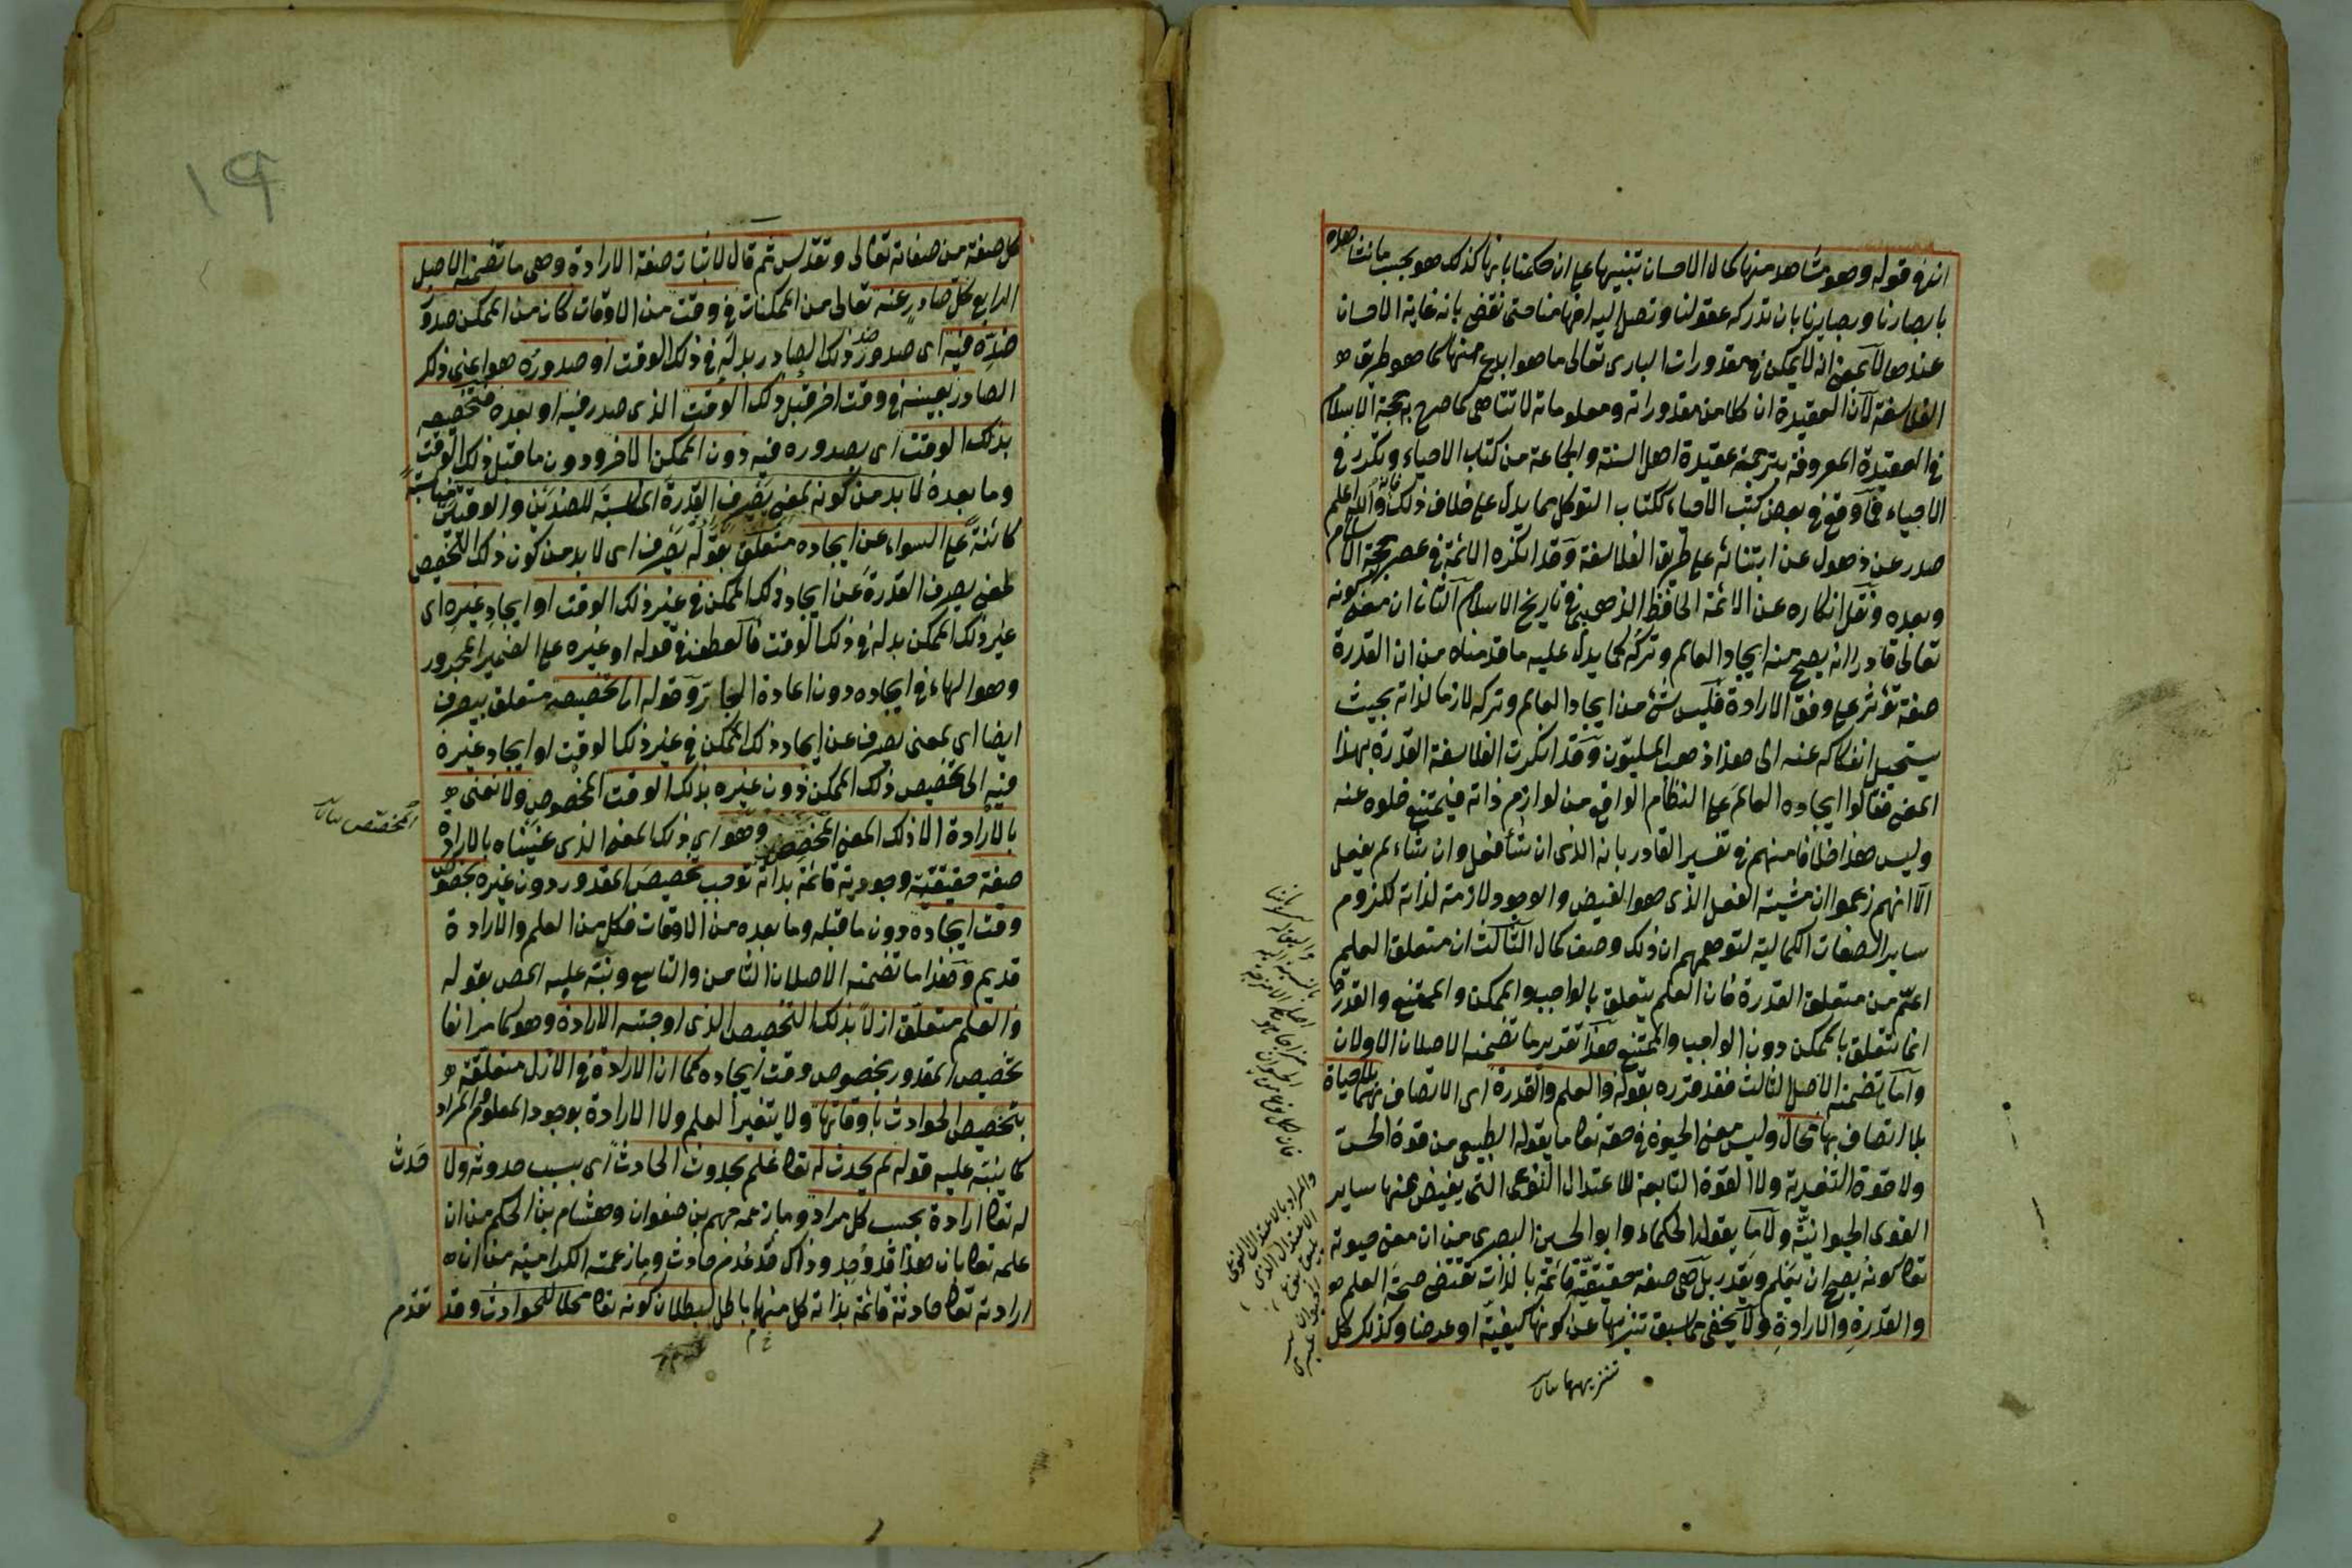 انه في قوله وهو مشاهد منها كمال الاحسان تنبيها على ان حكمنا بانها كذلك هو بحسب ما نشاهده
بابصارنا وبصايرنا بان تدركه عقولنا وتصل اليه افهامنا حتى نقضي بانه غاية الاحسان
عندها لا بمعنى انه لا يمكن في مقدورات البارى تعالى ما هو ابدع منها كما هو طريق
الفلاسفة لان العقيدة ان كلا من مقدوراته ومعلوماته لا تتناهى كما صرح به حجة الاسلام
في العقيدة المعروفة بترجمة عقيدة اهل السنة والجماعة من كتاب الاحياء وتكرر في
الاحياء فما وقع في بعض كتب الاحياء ككتاب التوكل مما يدل على خلاف ذلك فانه والله اعلم
صدر عن ذهول عن ابتنائه على طريق الفلاسفة وقد انكره الائمة في عصر حجة الاسلام
وبعده ونقل انكاره عن الائمة الحافظ الذهبي في تاريخ الاسلام الثاني ان معنى كونه
تعالى قادرا انه يصح منه ايجاد العالم وتركه كما يدل عليه ما قدمناه من ان القدرة
صفة تؤثر على وفق الارادة فليس شئ من ايجاد العالم وتركه لازما لذاته بحيث
يستحيل انفكاكه عنه الى هذا ذهب المليون وقد انكرت الفلاسفة القدرة بهذا
المعنى فقالوا ايجاده العالم على النظام الواقع من لوازم ذاته فيمتنع خلوه عنه
وليس هذا خلافا منهم في تفسير القادر بانه الذى ان شاء فعل وان شاء لم يفعل
الا انهم زعموا ان مشيئة الفعل الذى هو الفيض والوجود لازمة لذاته كلزوم
ساير الصفات الكمالية لتوهمهم ان ذلك وصف كمال الثالث ان متعلق العلم
اعم من متعلق القدرة فان العلم يتعلق بالواجب والممكن والممتنع والقدرة
انما تتعلق بالممكن دون الواجب والممتنع هذا تقدير ما تضمنه الاصلان الاولان
واما ما تضمنه الاصل الثالث فقد قرره بقوله والعلم والقدرة اى الاتصاف بهما بلا حياة
لما اتصاف بها محال وليس معنى الحيوة في حقه تعا ما يقوله الطبيعى من قوة الحس
ولا قوة التغذية ولا القوة التابعة للاعتدال النوعى التى يفيض عنها ساير
القوى الحيوانية ولا ما يقوله الحكماء وابو الحسين البصرى من ان معنى حيوته
تعا كونه يصح ان يعلم ويقدر بل هى صفة حقيقية قائمة بالذات تقتضى صحة العلم
والقدرة والارادة ولا يخفى مما سبق تنزيهها عن كونها كيفية او عرضا وكذلك كل
والمراد بالاعتدال النوعى
تنزيهها
١٩
كل صفة من صفاته تعالى وتقدس ثم قال لاثبات صفة الارادة وهى ما تضمنه الاصل
الرابع كل صادر عنه تعالى من الممكنات في وقت من الاوقات كان من الممكن صدور
ضده فيه اى صدور ضد ذلك الصادر بدله في ذلك الوقت او صدوره هو اعنى ذلك
الصادر بعينه في وقت اخر قبل ذلك الوقت الذى صدر فيه او بعده فتخصيصه
بذلك الوقت اى بصدوره فيه دون الممكن الاخر ودون ما قبل ذلك الوقت
وما بعده لا بد من كونه لمعنى يصرف القدرة المناسبة للضدين والوقتين مناسبة
كائنة على السواء عن ايجاده متعلق بقوله يصرف اى لا بد من كون ذلك التخصيص
لمعنى يصرف القدرة عن ايجاد ذلك الممكن في غير ذلك الوقت او ايجاد غيره اى
غير ذلك الممكن بدله في ذلك الوقت فالعطف في قوله او غيره على الضمير المجرور
وهو الهاء في ايجاده دون اعادة الجار وقوله الى تخصيصه متعلق بيصرف
ايضا اى لمعنى يصرف عن ايجاد ذلك الممكن في غير ذلك الوقت او ايجاد غيره
فيه الى تخصيص ذلك الممكن دون غيره بذلك الوقت المخصوص ولا نعنى
بالارادة الا ذلك المعنى المخصص وهو اى ذلك المعنى الذى عنيناه بالارادة
المخصص
صفة حقيقية وجودية قائمة بذاته توجب تخصيص المقدور دون غيره بخصوص
وقت ايجاده دون ما قبله وما بعده من الاوقات فكل من العلم والارادة
قديم وهذا ما تضمنه الاصلان الثامن والتاسع ونبه عليه المص بقوله
والعلم متعلق ازلا بذلك التخصيص الذى اوجبته الارادة وهو كما مر انفا
تخصيص المقدور بخصوص وقت ايجاده كما ان الارادة في الازل متعلقة
بتخصيص الحوادث باوقاتها ولا يتغير العلم ولا الارادة بوجود المعلوم والمراد
كما ينبه عليه قوله لم يحدث له تعا علم بحدوث الحادث اى بسبب حدوثه ولا حدث
له تعا ارادة بحسب كل مراد وما زعمه جهم بن صفوان وهشام بن الحكم من ان
علمه تعا بان هذا قد وجد وذاك قد عدم حادث وما زعمته الكرامية من ان
ارادته تعا حادثة قائمة بذاته كل منهما باطل لبطلان كونه تعا محلا للحوادث وقد تقدم